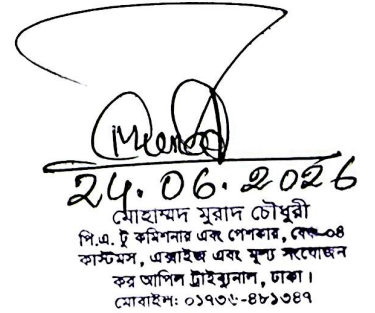 24.06.2026
মোহাম্মদ মুরাদ চৌধুরী
পি.এ. টু কমিশনার এবং পেশকার, বেঞ্চ-০৪
কাস্টমস, এক্সাইজ এবং মূল্য সংযোজন
কর আপিল ট্রাইব্যুনাল, ঢাকা।
মোবাইল: ০১৭৩৬-৪৮১৩৪৭